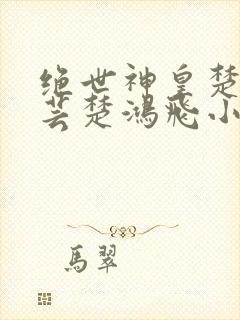 绝世神皇楚
芸楚鸿飛小
馬翠